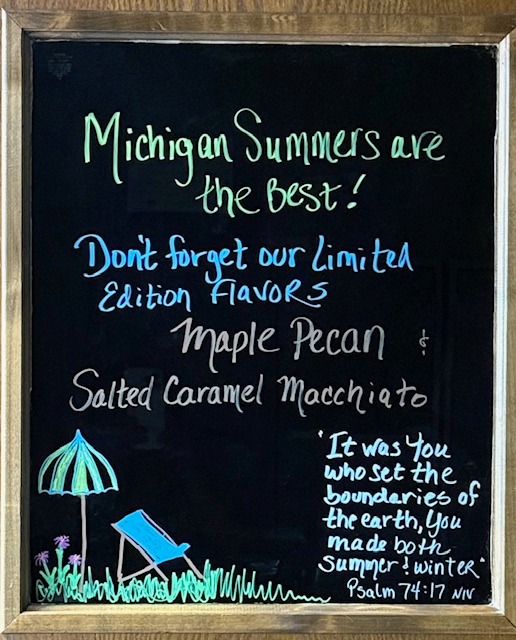 Michigan Summers are
the Best!
Don't forget our Limited
Edition Flavors
Maple Pecan &
Salted Caramel Macchiato
"It was You
who set the
boundaries of
the earth, You
made both
summer & winter"
Psalm 74:17 NIV